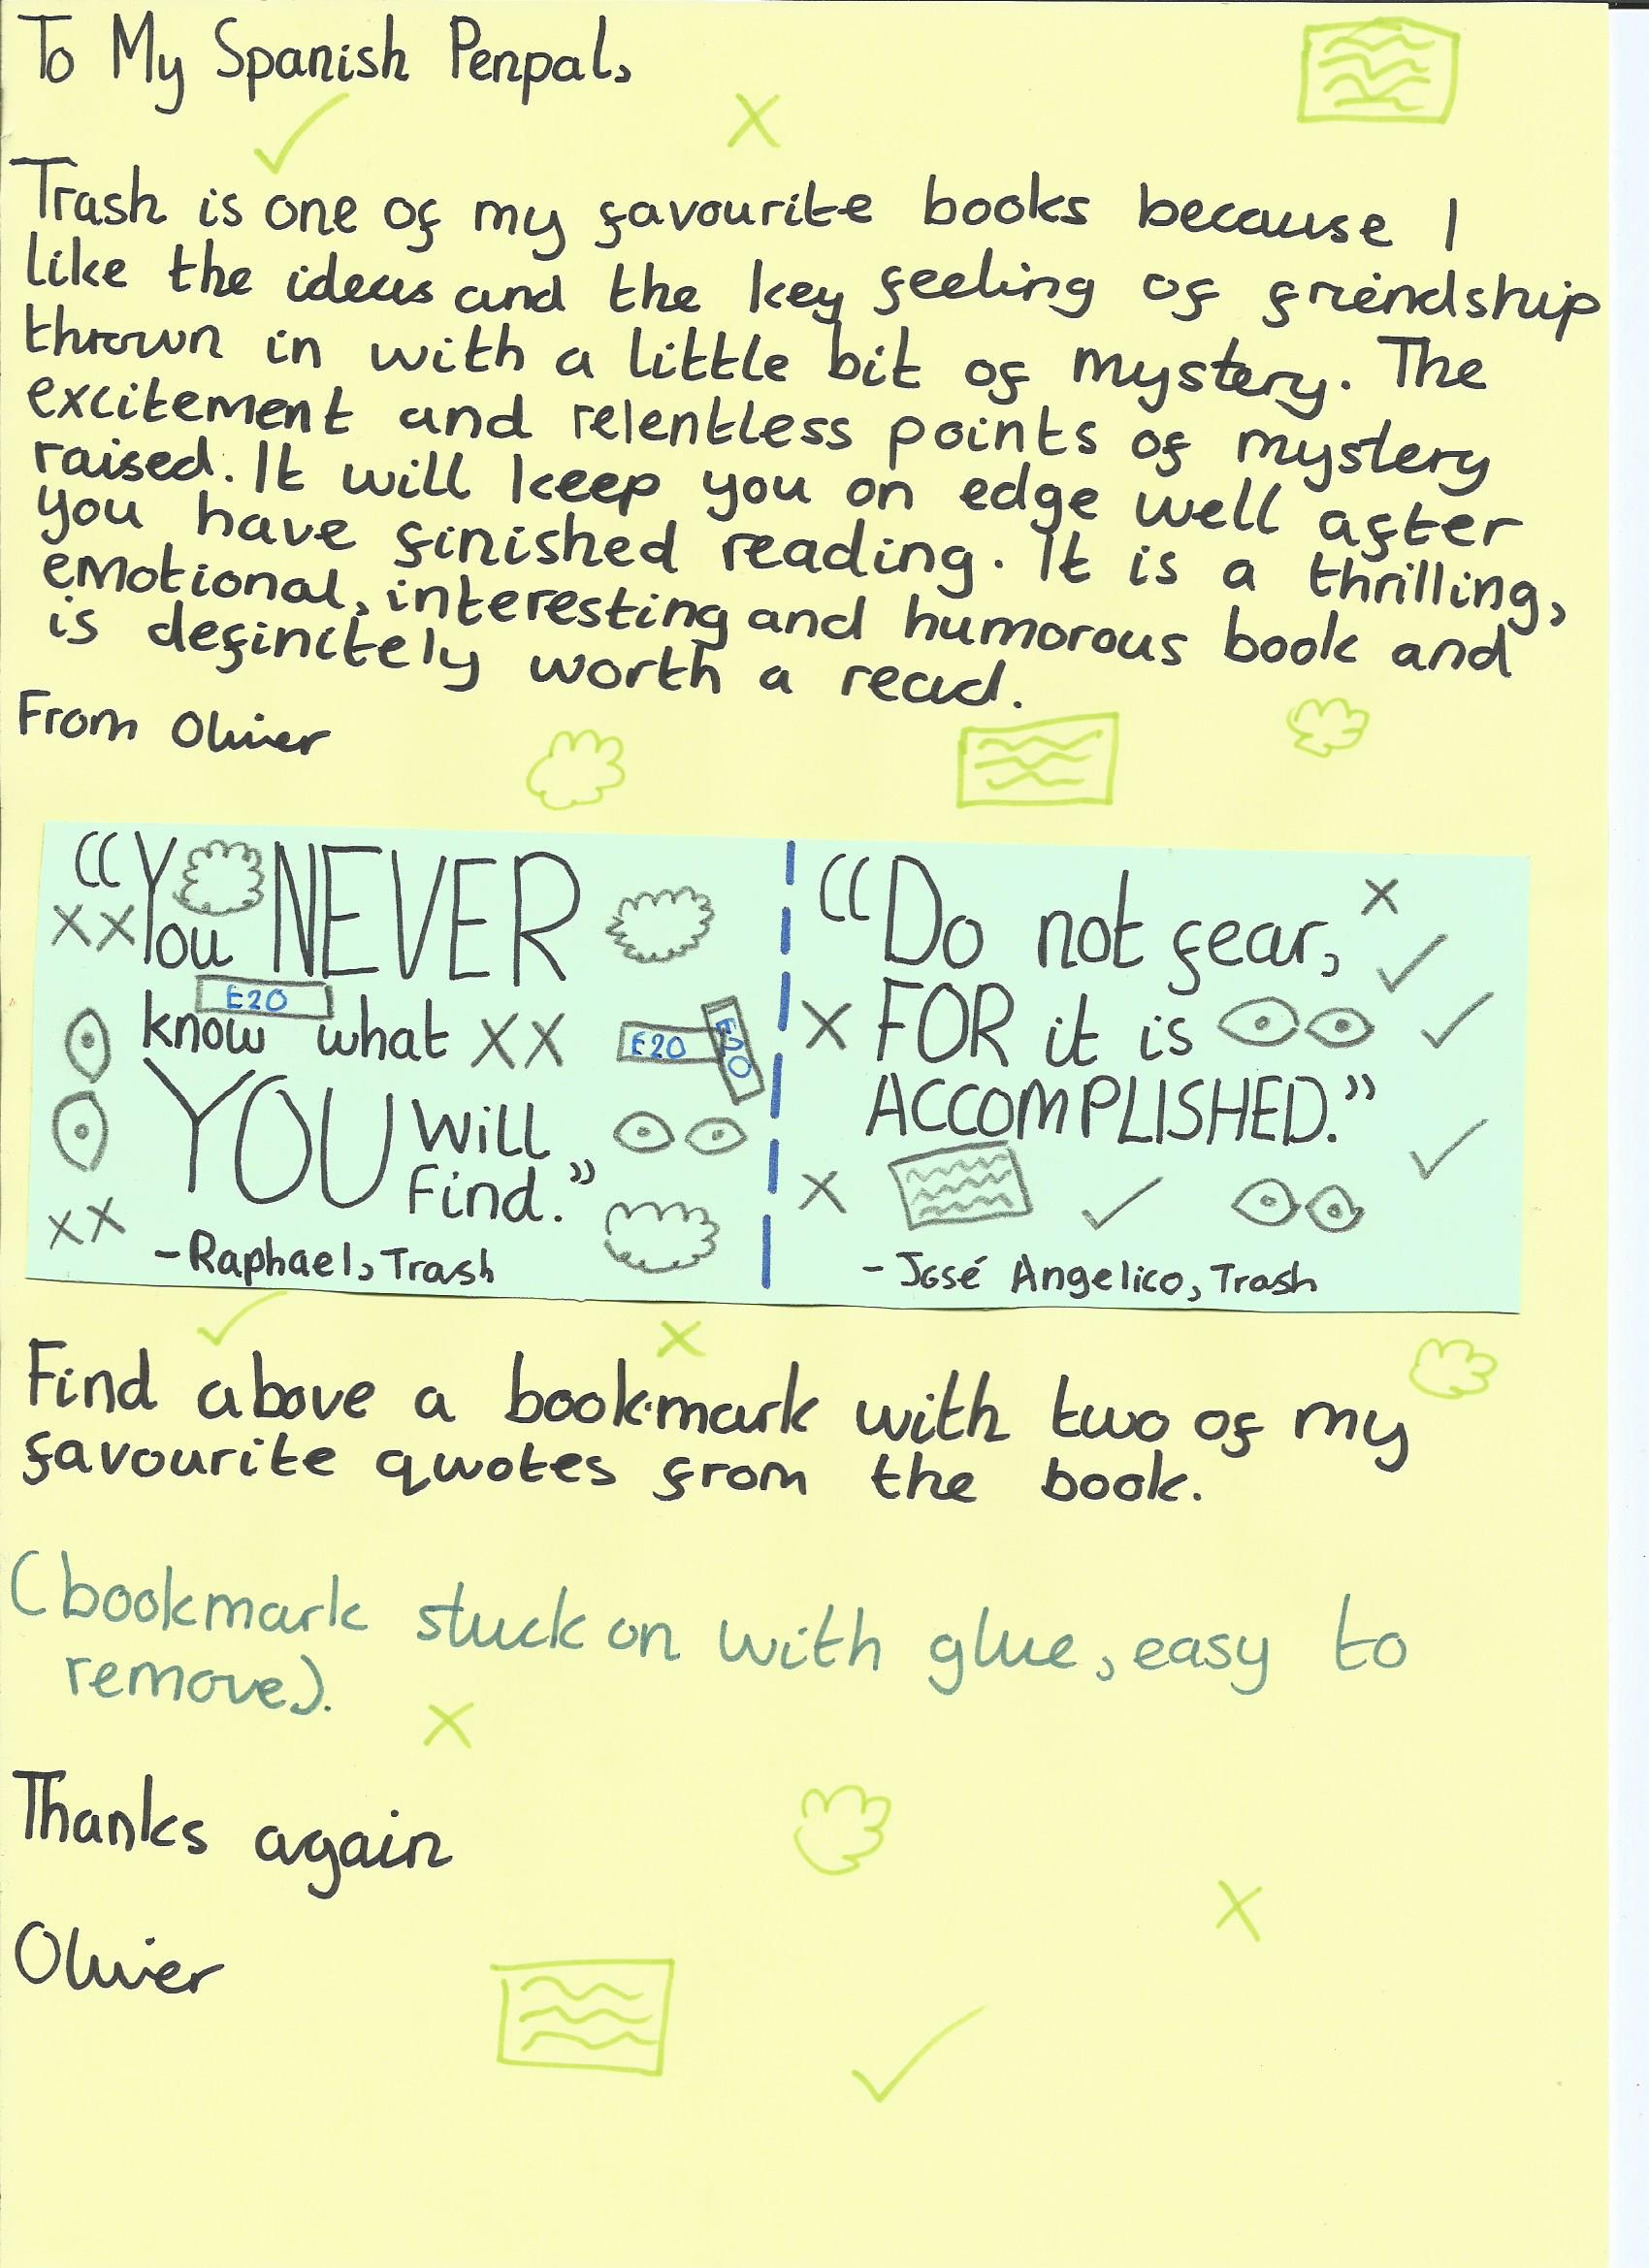 To My Spanish Penpal,
Trash is one of my favourite books because I
like the ideas and the key feeling of friendship
thrown in with a little bit of mystery. The
excitement and relentless points of mystery
raised. It will keep you on edge well after
you have finished reading. It is a thrilling,
emotional, interesting and humorous book and
is definitely worth a read.
From Olivier
“You NEVER
know what
YOU will
find.”
-Raphael, Trash
£20
£20
£20
“Do not fear,
FOR it is
ACCOMPLISHED.”
- José Angelico, Trash
Find above a bookmark with two of my
favourite quotes from the book.
(bookmark stuck on with glue, easy to
remove).
Thanks again
Olivier